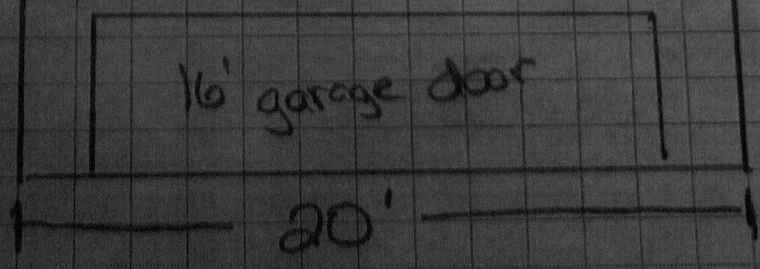 16' garage door
20'